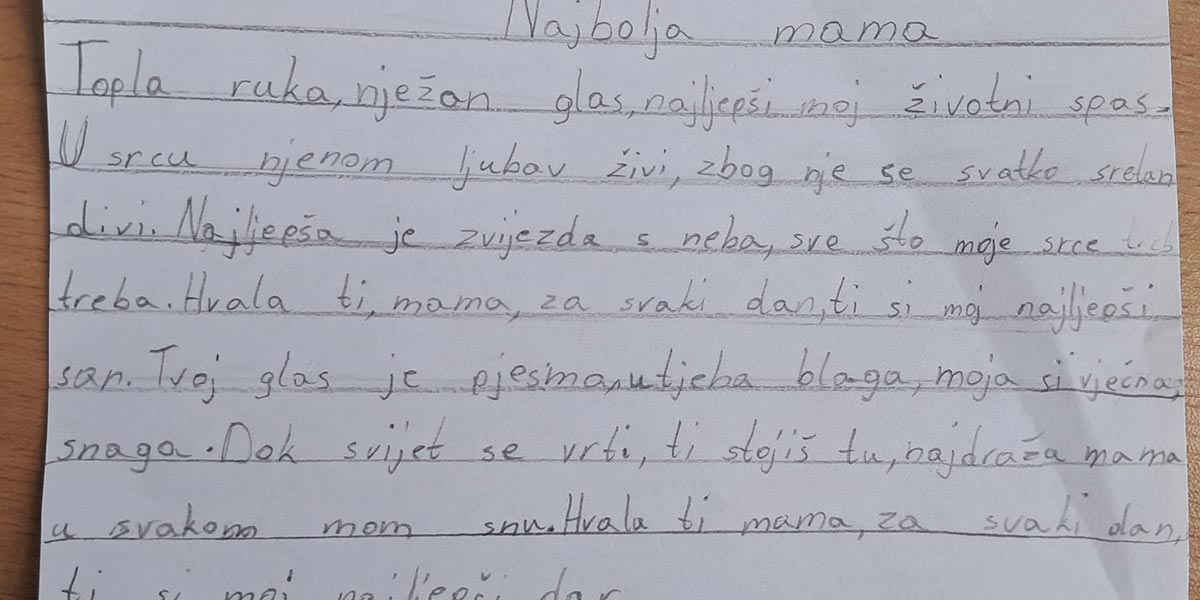 Najbolja mama
Topla ruka, nježan glas, najljepši moj životni spas.
U srcu njenom ljubav živi, zbog nje se svatko sretan
divi. Najljepša je zvijezda s neba, sve što moje srce
treba. Hvala ti, mama, za svaki dan, ti si moj najljepši
san. Tvoj glas je pjesma, utjeha blaga, moja si vječna,
snaga. Dok svijet se vrti, ti stojiš tu, najdraža mama
u svakom mom snu. Hvala ti mama, za svaki dan,
ti si moj najljepši dar